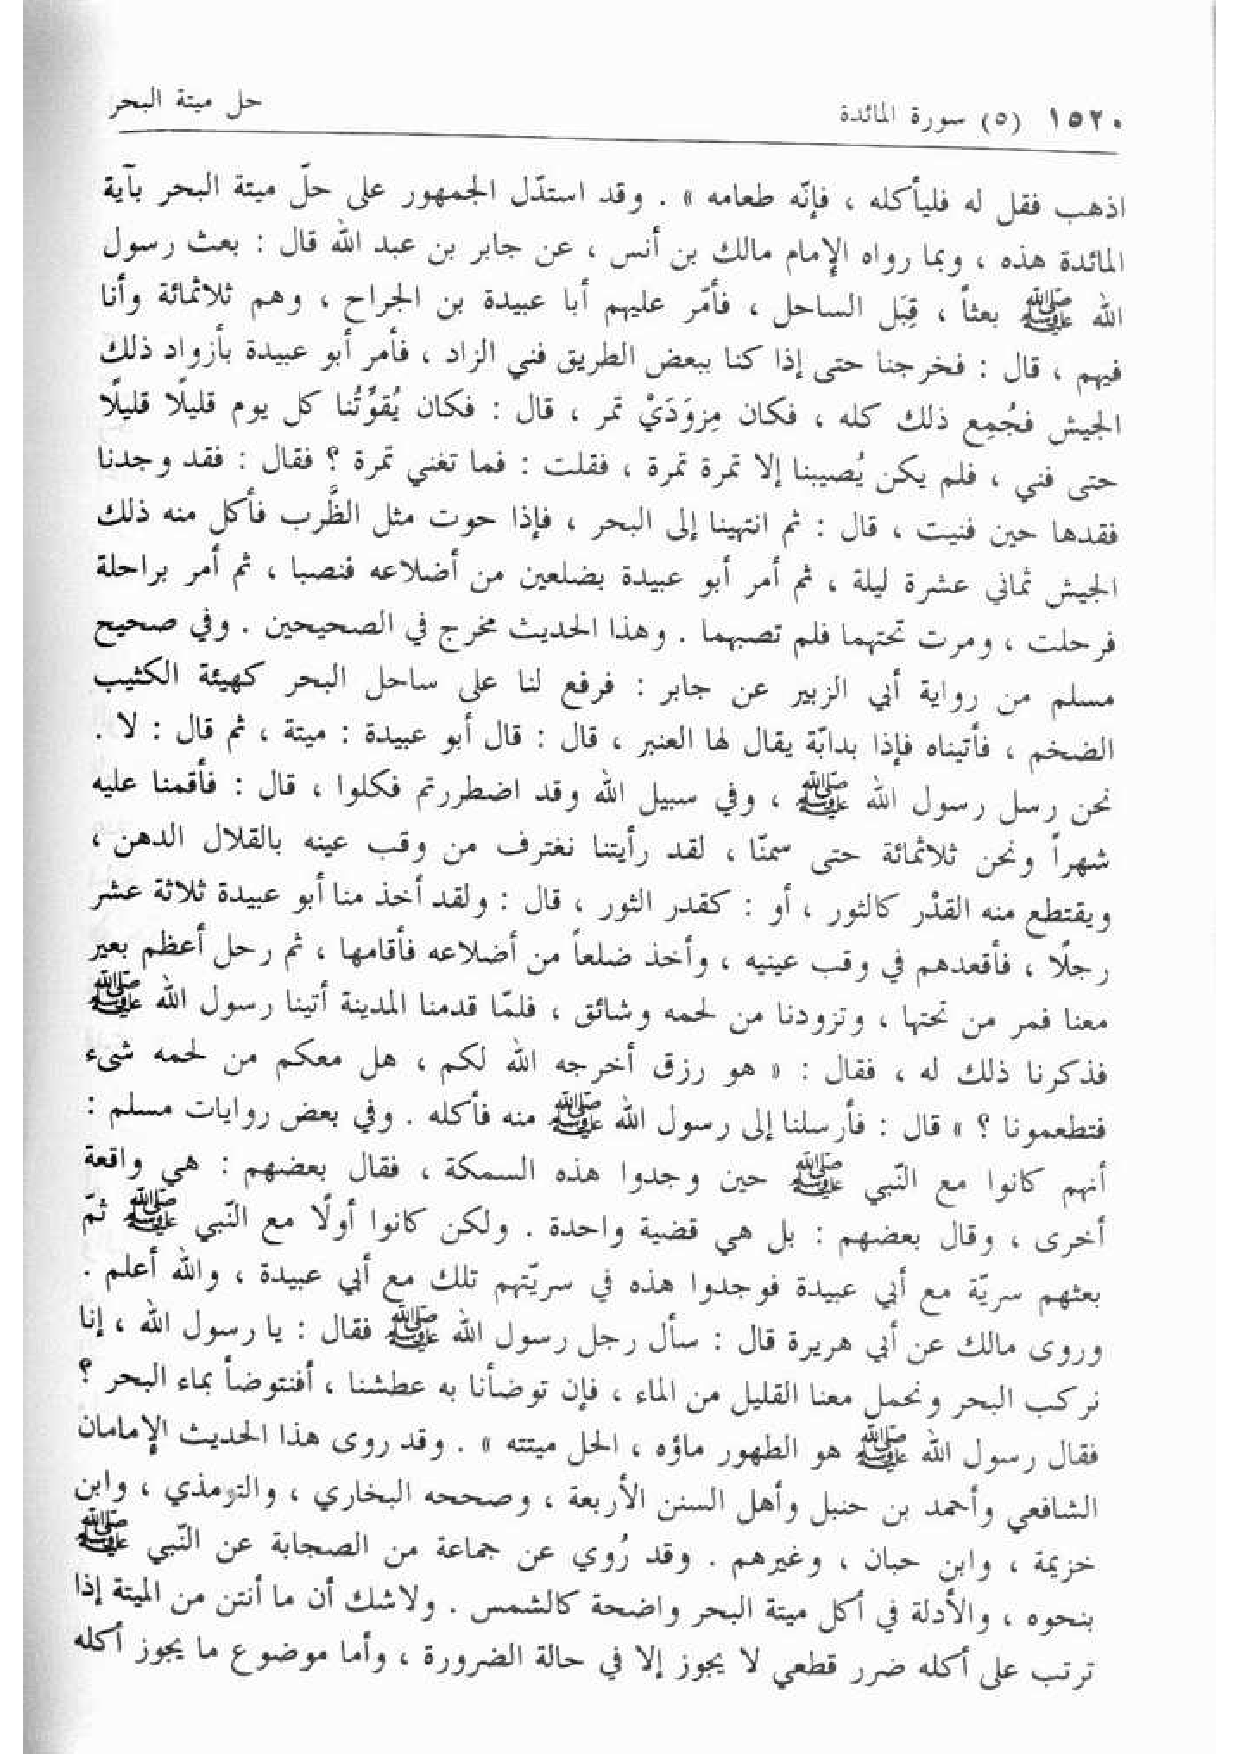 ١٥٢٠ (٥) سورة المائدة
حل ميتة البحر
اذهب فقل له فليأكله ، فإنّه طعامه » . وقد استدّل الجمهور على حلّ ميتة البحر بآية
المائدة هذه ، وبما رواه الإمام مالك بن أنس ، عن جابر بن عبد الله قال : بعث رسول
الله ﷺ بعثاً ، قِبَل الساحل ، فأمّر عليهم أبا عبيدة بن الجراح ، وهم ثلاثمائة وأنا
فيهم ، قال : فخرجنا حتى إذا كنا ببعض الطريق فني الزاد ، فأمر أبو عبيدة بأزواد ذلك
الجيش فجُمِع ذلك كله ، فكان مِزوَدَيْ تمر ، قال : فكان يُقوِّتُنا كل يوم قليلًا قليلًا
حتى فني ، فلم يكن يُصيبنا إلا تمرة تمرة ، فقلت : فما تغني تمرة ؟ فقال : فقد وجدنا
فقدها حين فنيت ، قال : ثم انتهينا إلى البحر ، فإذا حوت مثل الظَّرب فأكل منه ذلك
الجيش ثماني عشرة ليلة ، ثم أمر أبو عبيدة بضلعين من أضلاعه فنصبا ، ثم أمر براحلة
فرحلت ، ومرت تحتهما فلم تصبهما . وهذا الحديث مخرج في الصحيحين . وفي صحيح
مسلم من رواية أبي الزبير عن جابر : فرفع لنا على ساحل البحر كهيئة الكثيب
الضخم ، فأتيناه فإذا بدابّة يقال لها العنبر ، قال : قال أبو عبيدة : ميتة ، ثم قال : لا .
نحن رسل رسول الله ﷺ ، وفي سبيل الله وقد اضطررتم فكلوا ، قال : فأقمنا عليه
شهراً ونحن ثلاثمائة حتى سمنّا ، لقد رأيتنا نغترف من وقب عينه بالقلال الدهن ،
ويقتطع منه القدْر كالثور ، أو : كقدر الثور ، قال : ولقد أخذ منا أبو عبيدة ثلاثة عشر
رجلًا ، فأقعدهم في وقب عينيه ، وأخذ ضلعاً من أضلاعه فأقامها ، ثم رحل أعظم بعير
معنا فمر من تحتها ، وتزودنا من لحمه وشائق ، فلمّا قدمنا المدينة أتينا رسول الله ﷺ
فذكرنا ذلك له ، فقال : « هو رزق أخرجه الله لكم ، هل معكم من لحمه شىء
فتطعمونا ؟ » قال : فأرسلنا إلى رسول الله ﷺ منه فأكله . وفي بعض روايات مسلم :
أنهم كانوا مع النّبي ﷺ حين وجدوا هذه السمكة ، فقال بعضهم : هي واقعة
أخرى ، وقال بعضهم : بل هي قضية واحدة . ولكن كانوا أولًا مع النّبي ﷺ ثمّ
بعثهم سريّة مع أبي عبيدة فوجدوا هذه في سريّتهم تلك مع أبي عبيدة ، والله أعلم .
وروى مالك عن أبي هريرة قال : سأل رجل رسول الله ﷺ فقال : يا رسول الله ، إنا
نركب البحر ونحمل معنا القليل من الماء ، فإن توضأنا به عطشنا ، أفنتوضأ بماء البحر ؟
فقال رسول الله ﷺ هو الطهور ماؤه ، الحل ميتته » . وقد روى هذا الحديث الإمامان
الشافعي وأحمد بن حنبل وأهل السنن الأربعة ، وصححه البخاري ، والترمذي ، وابن
خزيمة ، وابن حبان ، وغيرهم . وقد رُوي عن جماعة من الصحابة عن النّبي ﷺ
بنحوه ، والأدلة في أكل ميتة البحر واضحة كالشمس . ولاشك أن ما أنتن من الميتة إذا
ترتب على أكله ضرر قطعي لا يجوز إلا في حالة الضرورة ، وأما موضوع ما يجوز أكله